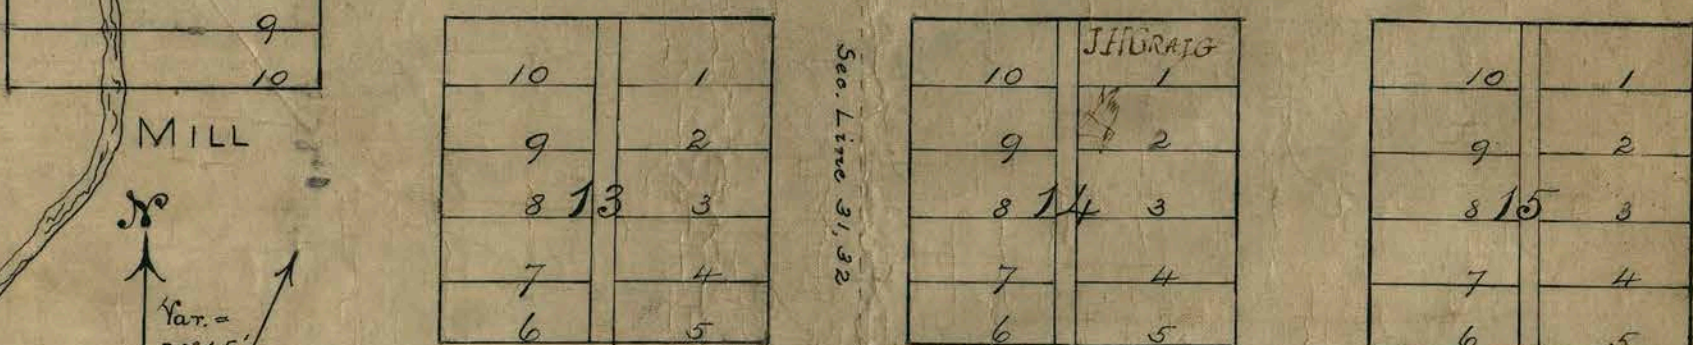 9
10
MILL
N
Var. =
10 1
9 2
8 13 3
7 4
6 5
Sec. Line 31, 32
J.H GRAIG
10 1
9 2
8 14 3
7 4
6 5
10 1
9 2
8 15 3
7 4
6 5